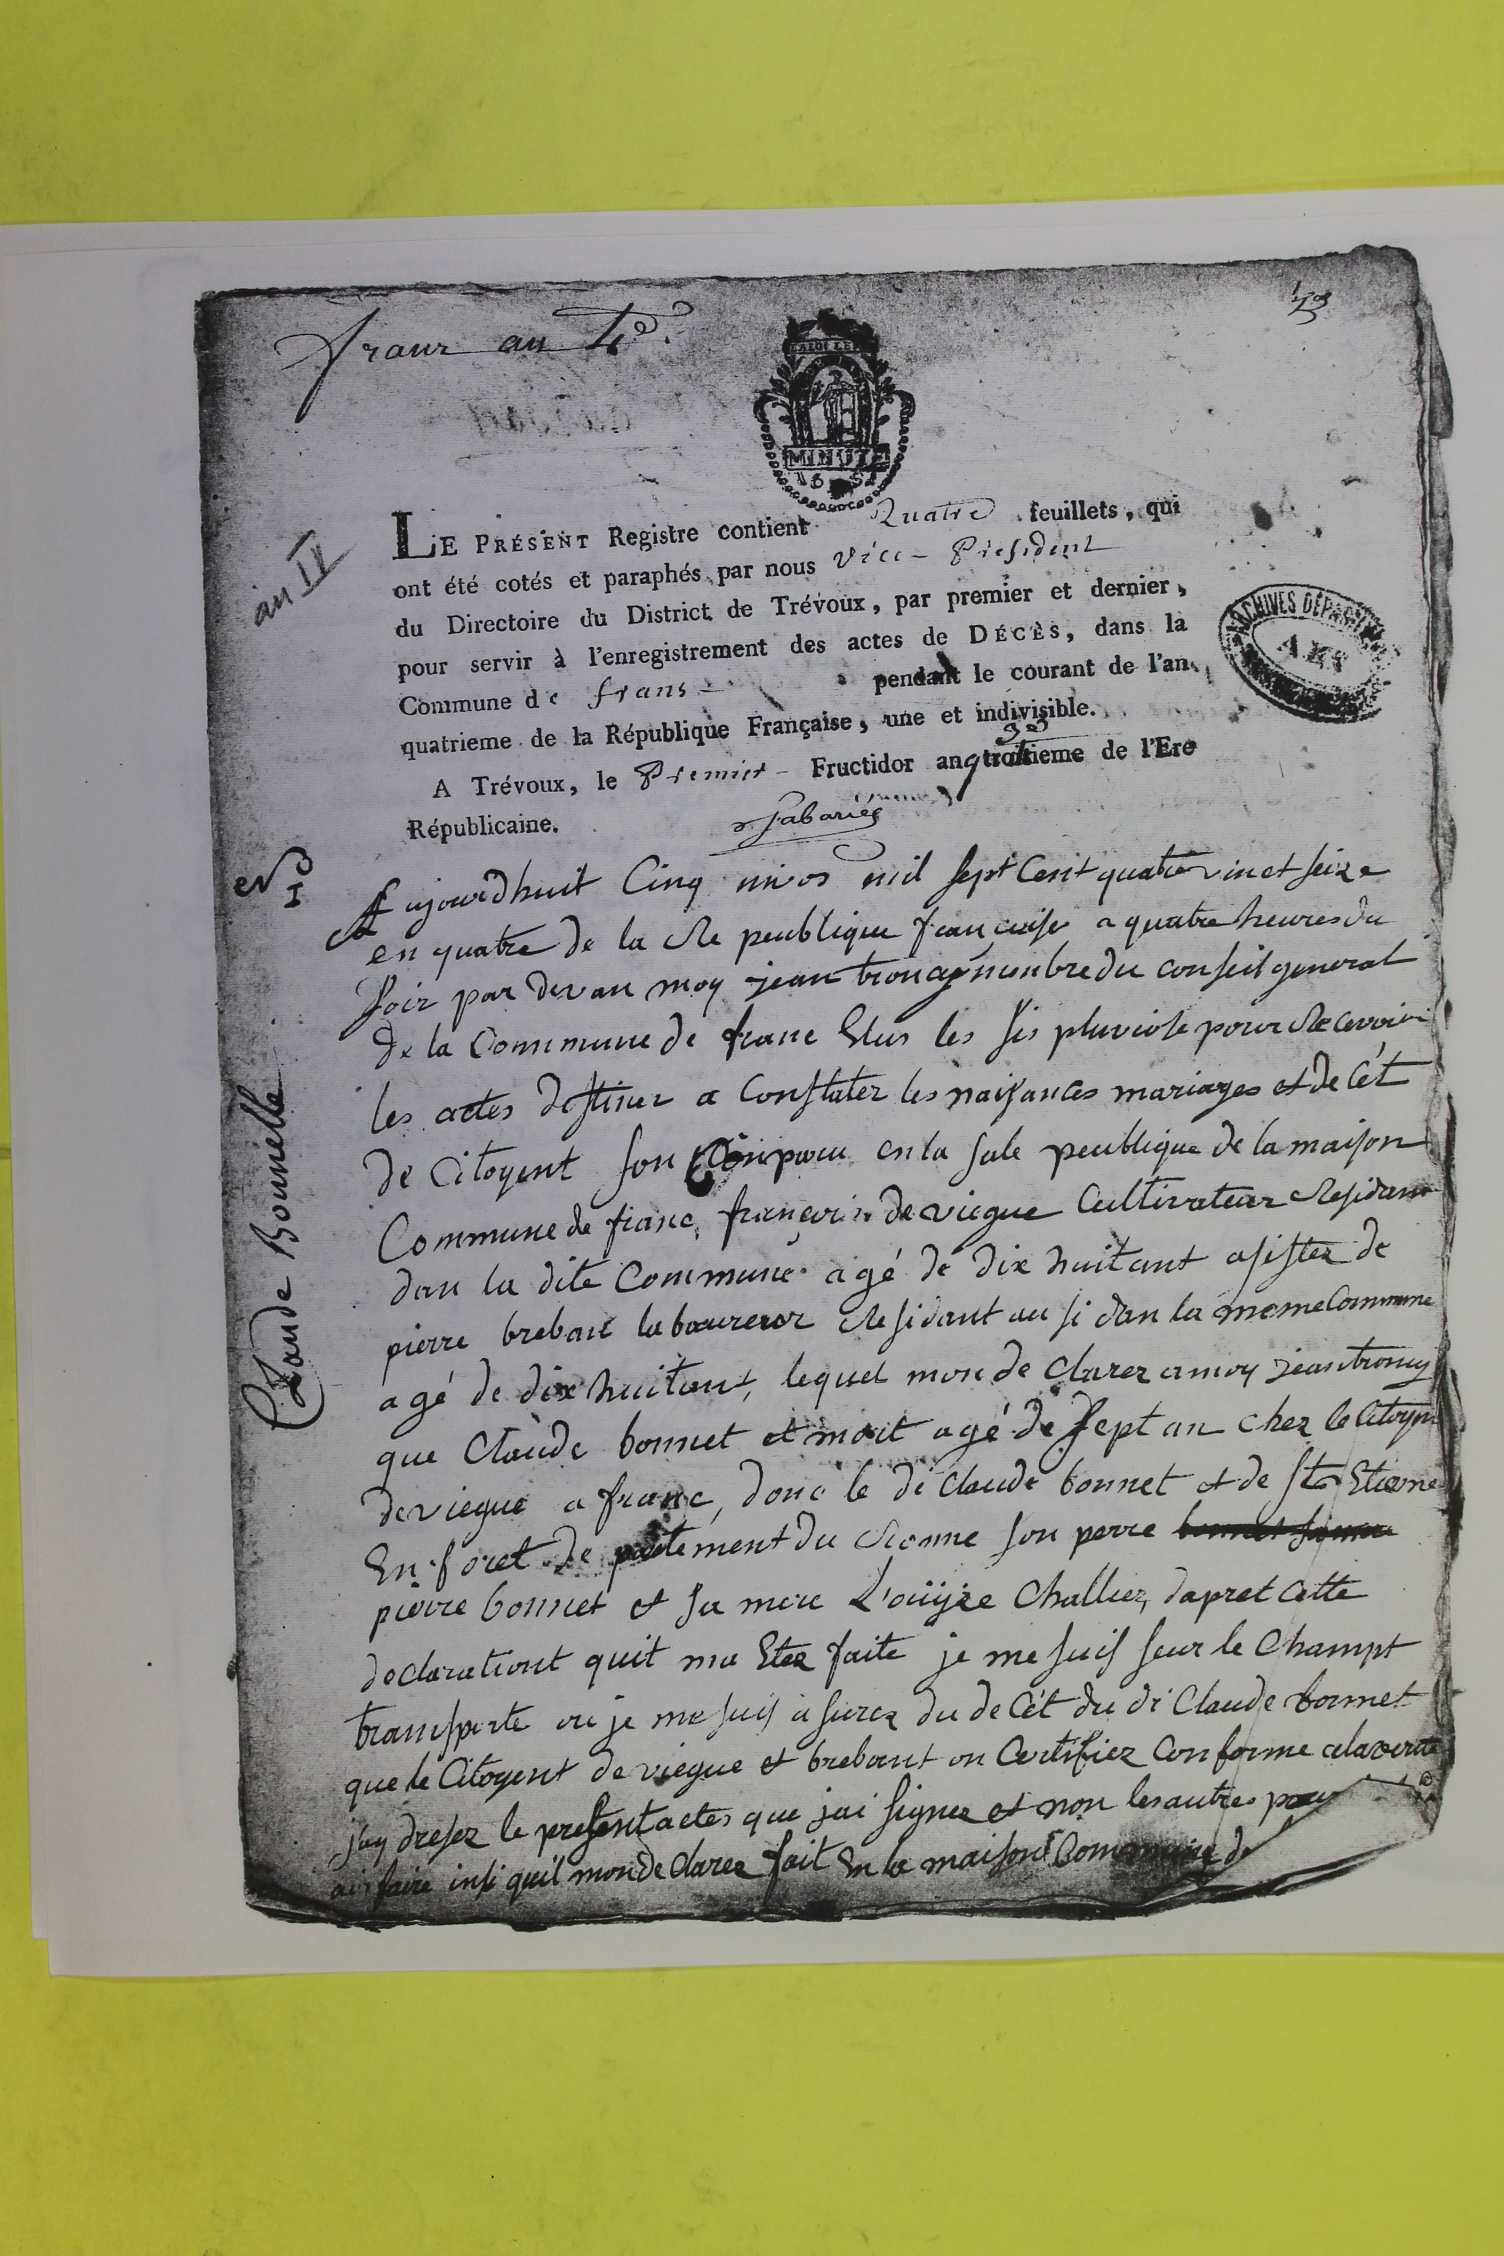 frans an 4e.
MINUTE
an IV
LE PRÉSENT Registre contient Quatre feuillets, qui
ont été cotés et paraphés par nous Vice-President
du Directoire du District de Trévoux, par premier et dernier,
pour servir à l'enregistrement des actes de DÉCÈS, dans la
Commune de frans - pendant le courant de l'an
quatrieme de la République Française, une et indivisible.
A Trévoux, le Premier - Fructidor an troisieme de l'Ere
Républicaine.
ARCHIVES DÉPARTEM
AIN
No 1
Claude Bonnet
Aujourdhuit Cinq nivos mil sept Cent quatre vinet seize
en quatre de la Re peublique francaise a quatre heures du
soir par devan moy jean troncy menbre du conseil general
de la Commune de franc Elus les sis pluviose pour Recevoir
les actes destiner a Constater les naisances mariages et de Cét
de Citoyent son Conparu en la sale peublique de la maison
Commune de franc, francois de viegue Cultivateur Residant
dan la dite Commune agé de dix huitant asister de
pierre breban laboureur Residant au si dan la meme Commune
agé de dix huitant, lequel mon de Clarez a moy jean troncy
que Claude bonnet et mort agé de sept an chez le Citoyen
de viegue a franc, donc le di Claude bonnet et de St Etienne
En foret de partement du Ronne son perre
pierre bonnet et sa mere L'ouise Challier, dapret Cette
declarationt quit ma Etez faite je me suis seur le Champt
transporte ou je me suis a surez du de Cét du di Claude bonnet
que le Citoyent de viegue et brebant on Certifiez Conforme a la verité
j'ay dresez le present actes que jai signez et non les autres pour
faire insi quil mon de Clarez fait En la maison Commune de